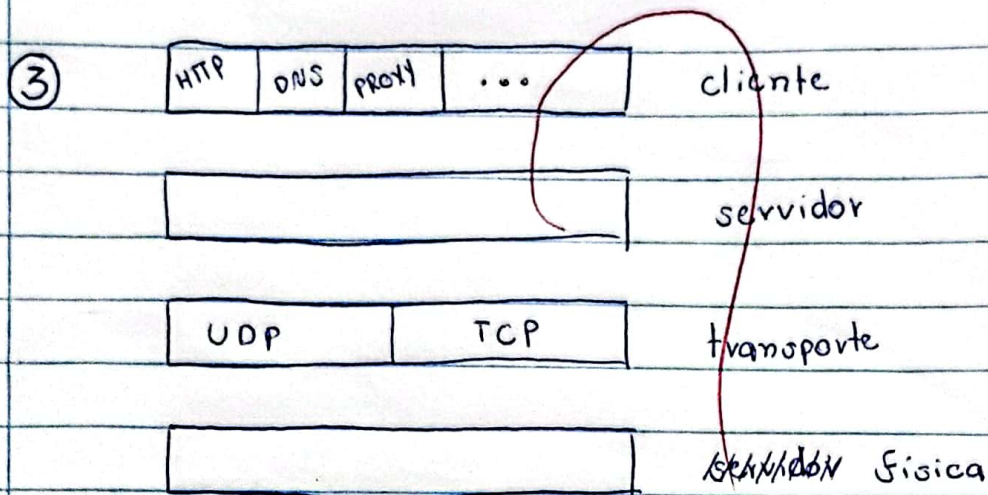 3 HTTP DNS PROXY ... cliente
servidor
UDP TCP transporte
física